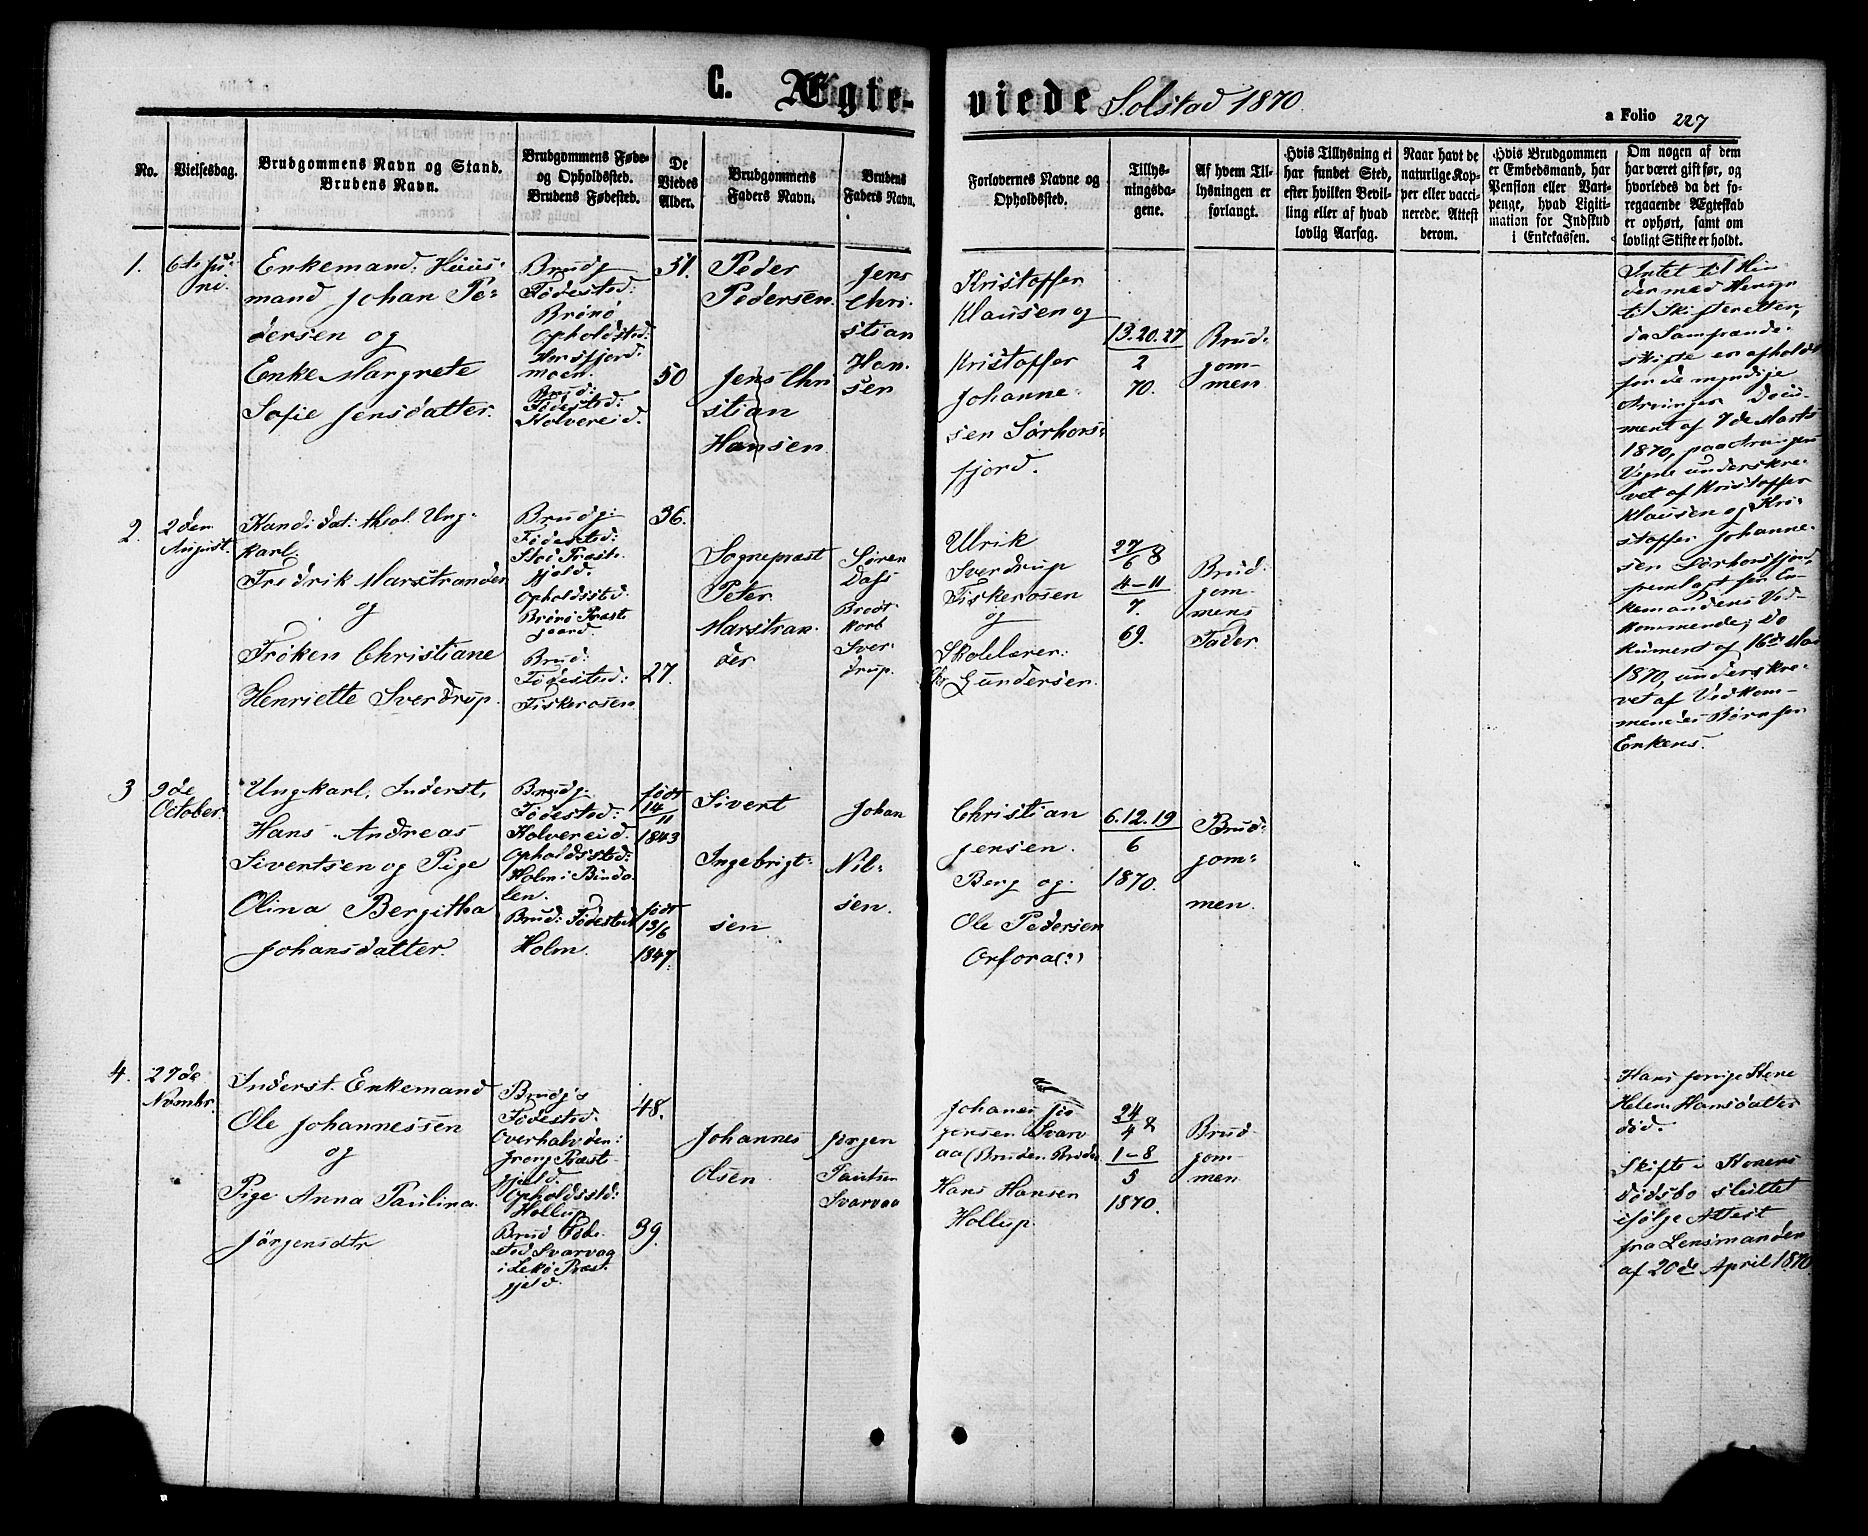 C. Ægteviede Solstad 1870.
a Folio 227
No.
Vielsesdag.
Brudgommens Navn og Stand.
Brudens Navn.
Brudgommens Føde-
og Opholdssted.
Brudens Fødested.
De
Viedes
Alder.
Brudgommens
Faders Navn.
Brudens
Faders Navn.
Forlovernes Navne og
Opholdssted.
Tillys-
ningsda-
gene.
Af hvem Til-
lysningen er
forlangt.
Hvis Tillysning ei
har fundet Sted,
efter hvilken Bevil-
ling eller af hvad
lovlig Aarsag.
Naar havt de
naturlige Kop-
per eller vacci-
nerede. Attest
derom.
Hvis Brudgommen
er Embedsmand, har
Pension eller Vart-
penge, hvad Ligiti-
mation for Indskud
i Enkekassen.
Om nogen af dem
har været gift før, og
hvorledes da det fo-
regaaende Ægteskab
er ophørt, samt om
lovligt Skifte er holdt.
1.
6te Ju-
ni.
Enkemand, Huus-
mand Johan Pe-
dersen og
Enke Margrete
Sofie Jensdatter.
Brudg
Fødested:
Brønø
Opholdsted:
Horsfjord-
moen.
Brud:
Fødested:
Kolvereid.
51.
50
Peder
Pedersen.
Jens Chri
stian
Hansen
Jens
Chri-
stian
Han-
sen
Kristoffer
Klausen og
Kristoffer
Johanne-
sen Sørhors-
fjord.
13.20.27
2
70.
Brud-
gom-
men
Intet til Hin
der med Hensyn
til Skifteretten,
da Samfrænde-
skifte er afholdt
for de myndige
Arvinger. Docu-
ment af 7de Marts
1870, paa Arvingers
Vegne underskre-
vet af Kristoffer
Klausen og Kri-
stoffer Johanne-
sen Sørhorsfjord,
fremlagt for En-
kemandens Ved-
kommende; Do
kument af 16de Mai
1870, underskre-
vet af Vedkom-
mendes Børn for
Enkens.
2.
2den
August.
Kand: dat: theol. Ung-
karl.
Fredrik Marstrander
og
Frøken Christiane
Henriette Sverdrup.
Brudg:
Fødested:
Præste-
gjeld.
Opholdssted.
Brønø Præst
gaard.
Brud:
Fødested:
Fiskerosen
36.
27.
Sognepræst
Peter
Marstran-
der
Søren
Dass
Brodt
korb
Sver-
drup.
Ulrik
Sverdrup
Fiskerosen
og
Skolelærer:
Gundersen.
27 &
6
4-11
7.
69.
Brud-
gom-
mens
Fader
3
9de
October.
Ungkarl, Inderst,
Hans Andreas
Sivertsen og Pige
Olina Bergitha
Johansdatter.
Brudg.
Fødested:
Kolvereid.
Opholdssted:
Holm i Binda-
len.
Brud: Fødested
Holm.
født
14
11
1843
født
13/6
1847.
Sivert
Ingebrigt-
sen
Johan
Nil-
sen.
Christian
Jensen.
Berg og
Ole Pedersen
Orfora(?)
6.12.19
6
1870.
Brud-
gom-
men.
4.
27de
Novmbr.
Inderst. Enkemand
Ole Johannessen
og
Pige Anna Paulina
Jørgensdtr
Brudg's
Fødested.
Overhalvden:
Grong Præst
gjeld.
Opholdsstd:
Hollup
Brud Føde-
sted Svarvaa
i Lekø Præst
gjeld.
48.
39.
Johannes
Olsen
Jørgen
Paulsen
Svarvaa
Johanes Jør
gensen Svarv
aa (Brudens Broder
Hans Hansen
Hollup.
24 &
4
1-8
5
1870.
Brud-
gom-
men
Hans forrige Kone
Helen Hansdatter
død.
Skifte i Konens
Dødsbo sluttet
ifølge Attest
fra Lensmanden
af 20de April 1870.